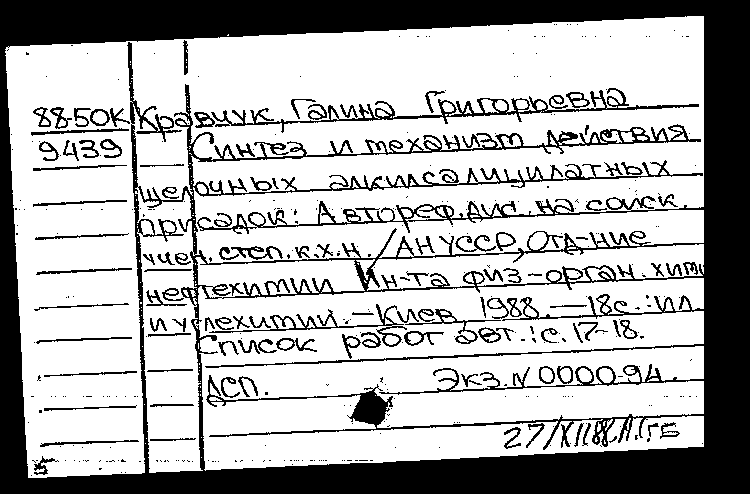 88-50К Кравчук, Галина Григорьевна
9439 Синтез и механизм действия
щелочных алкилсалицилатных
присадок: Автореф. дис. на соиск.
учен. степ. к.х.н. / АН УССР, Отд-ние
нефтехимии Ин-та физ-орган. хими
и углехимии. - Киев, 1988. - 18с. : ил
Список работ авт.: с. 17-18.
ДСП. Экз. N 000094.
27/XII88.